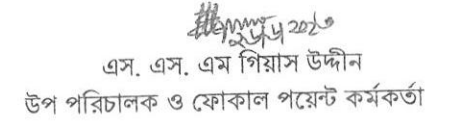 এস. এস. এম গিয়াস উদ্দীন
উপ পরিচালক ও ফোকাল পয়েন্ট কর্মকর্তা